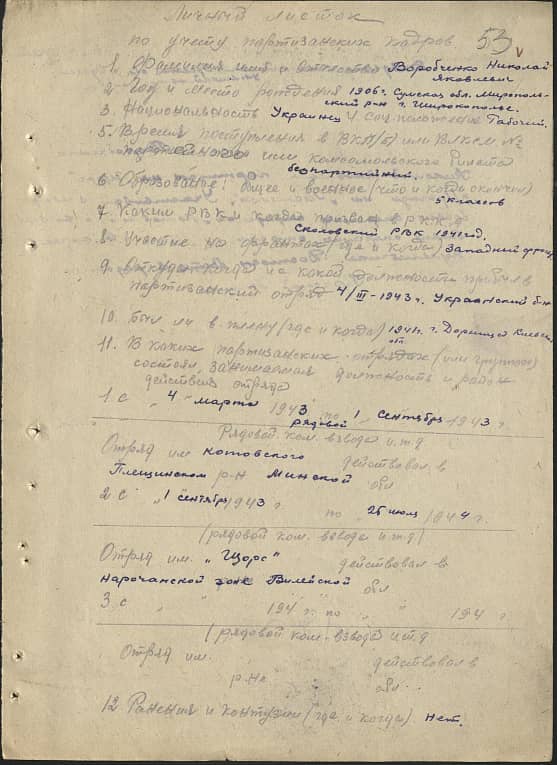 Личный листок
по учету партизанских кадров 53
1. Фамилия имя и отчество Воробченко Николай
Яковлевич
2. Год и место рождения 1906г. Сумская обл. Мирополь-
ский р-н г. Широкополье.
3. Национальность Украинец 4 Соц. положение Рабочий.
5. Время поступления в ВКП(б) или ВЛКСМ №
партийного или комсомольского билета
беспартийный.
6. Образование: общее и военное (что и когда окончил)
5 классов
7 Каким РВК и когда призван в РККА
Сколовский РВК 1941 год.
8. Участие на фронтах (где и когда) Западный фронт
9. Откуда когда и с какой должности прибыл в
партизанский отряд 4/III-1943г. Украинский б-н
10. Был ли в плену (где и когда) 1941г. г. Дарница Киевск.
обл.
11. В каких партизанских отрядах (или группах)
состоял, занимаемая должность и район
действия отряда
1 с "4" марта 1943 по 1 сентября 1943 г.
рядовой
Рядовой ком. взвода и.т.д
Отряд им Котовского действовал в
Плещинском р-н Минской обл
2 с "1 сентября 1943 г.
по "25 июля 1944 г.
(рядовой ком. взвода и т.д)
Отряд им. "Щорс" действовал в
Нарочанской зоне Вилейской обл
3 с " " 194 г. по " " 194 г
(рядовой ком. взвода и.т.д
Отряд им. действовал в
р-не обл.
12 Ранения и контузии (где и когда) нет.